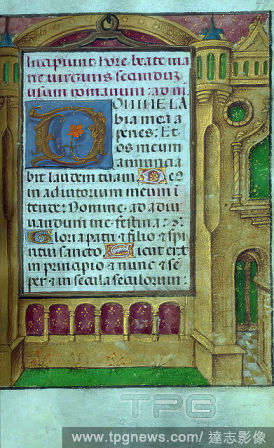 Incipiunt hore beate ma
rie virginis secundu3
usum romanum: ad m
OMINE LA
bia mea a
peries: Et
os meum
annuncia
bit laudem tuam: De
in adiutorium meum i
tende: Domine ad adiu
uandum me festina:
Gloria patri et filio et spiri
tui sancto: Sicut erat
in principio et nunc et se
per et in secula seculorum:
TPG
www.tpgnews.com/ 達志影像